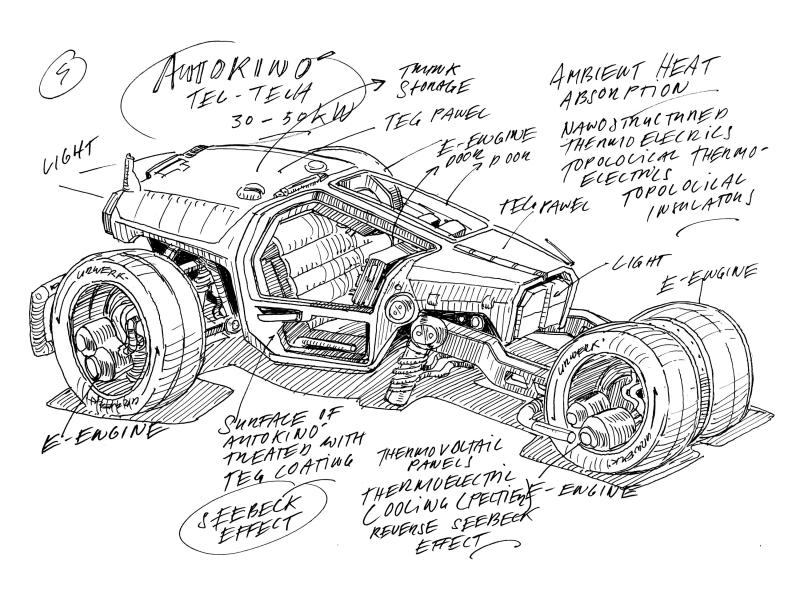 4
AUTOKINO
TEL-TECH
30-50KW
TRUNK
STORAGE
TEG PAWEL
E-EWGINE
DOOR
DOOR
AMBIENT HEAT
ABSORPTION
NAWOSTRUCTURED
THERMOELECRICS
TOPOLOCICAL THERMO-
ELECTRICS
TOPOLOCICAL
INSULATORS
LIGHT
TEG PAWEL
LIGHT
E-EWGINE
URWERK
URWERK
URWERK
E-EWGINE
SURFACE OF
AUTOKINO
TREATED WITH
TEG COATIWG
SEEBECK
EFFECT
THERMOVOLTAIL
PAWELS
THERMOELECTRIC
COOLIWG (PELTIER)
REVERSE SEEBECK
EFFECT
E-EWGINE